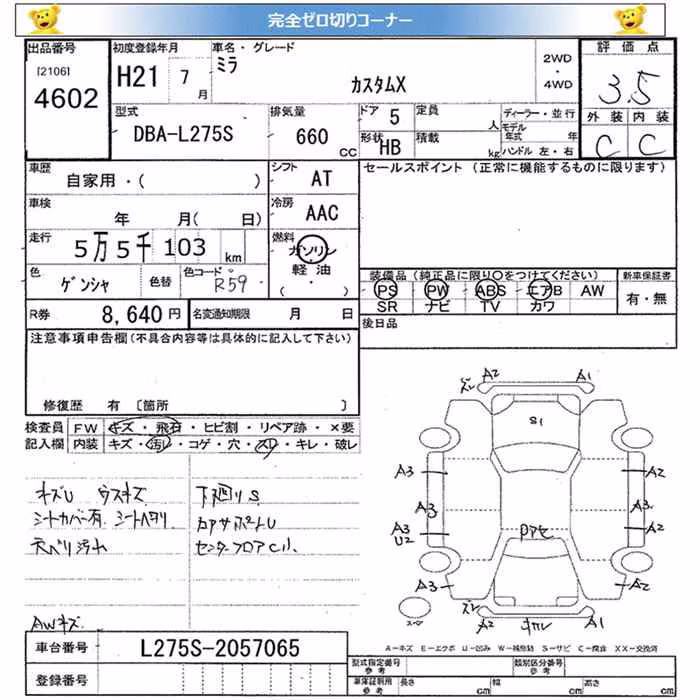 完全ゼロ切りコーナー
出品番号
[2106]
4602
初度登録年月
H21 7月
車名・グレード
ミラ
カスタムX
2WD
・
4WD
評価点
3.5
外装 内装
C C
型式
DBA-L275S
排気量
660 CC
ドア 5
形状 HB
定員 人
積載 kg
ディーラー・並行
モデル年式 年
ハンドル 左・右
車歴
自家用・( )
シフト
AT
車検
年 月( 日)
冷房
AAC
走行
5万5千103 km
燃料
ガソリン
軽油
( ・ )
色
ゲンシャ
色替
色コード
R59
R券 8,640円
名変通知期限 月 日
セールスポイント (正常に機能するものに限ります)
装備品 (純正品に限り○をつけてください)
PS PW ABS エアB AW
SR ナビ TV カワ
新車保証書
有・無
後日品
注意事項申告欄(不具合内容等は具体的に記入して下さい)
修復歴 有 〔箇所 〕
検査員
記入欄
FW キズ・飛石・ヒビ割・リペア跡・×要
内装 キズ・汚れ・コゲ・穴・スリ・キレ・破レ
キズU ウスキズ
シートカバー有 シートヘタリ
天ベリ汚れ
AWキズ
下回りS
カアサポートU
センターフロアC小
A2 A1
S1
A3 A2
A3 A3
A3 A2
U2
A3 A2
A2 キカレ A1
A-キズ E-エクボ U-凹み W-補修跡 S-サビ C-腐食 XX-交換済
車台番号
L275S-2057065
登録番号
型式指定番号
参考
類別区分番号
参考
車庫証明用
参考
長さ cm 幅 cm 高さ cm